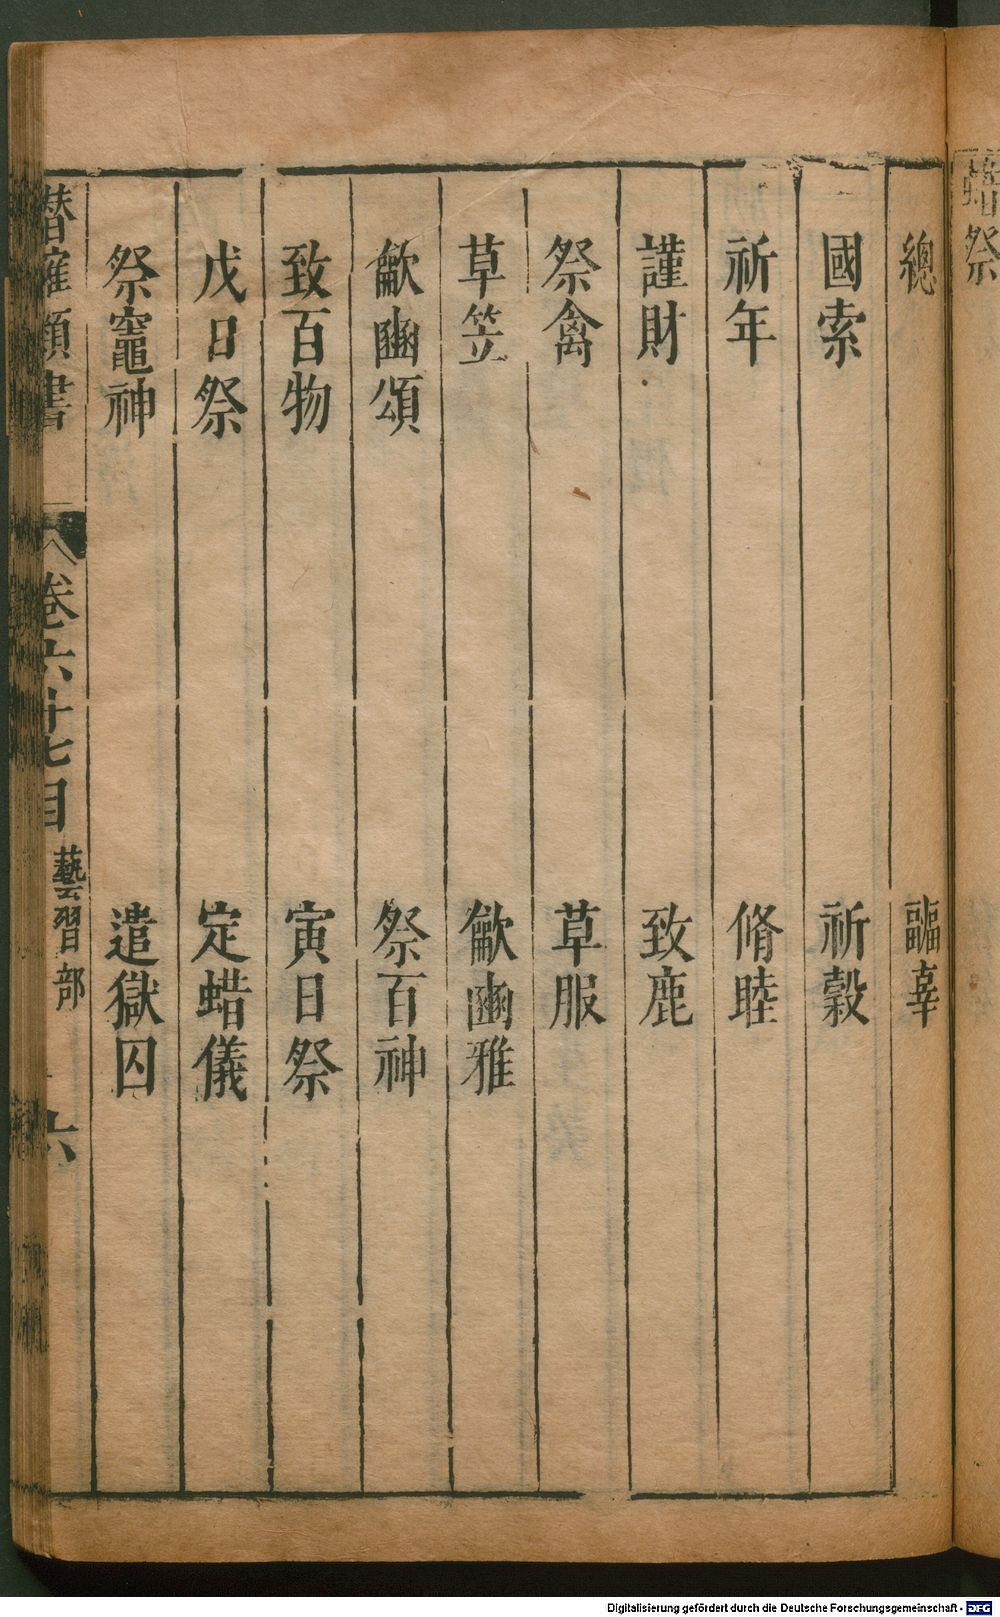 蜡祭
總　　疈辜
國索　　祈穀
祈年　　脩睦
謹財　　致鹿
祭禽　　草服
草笠　　龡豳雅
龡豳頌　　祭百神
致百物　　寅日祭
戊日祭　　定蜡儀
祭竈神　　遣獄囚
潛確類書　卷六十七目　藝習部　六
Digitalisierung gefördert durch die Deutsche Forschungsgemeinschaft - DFG